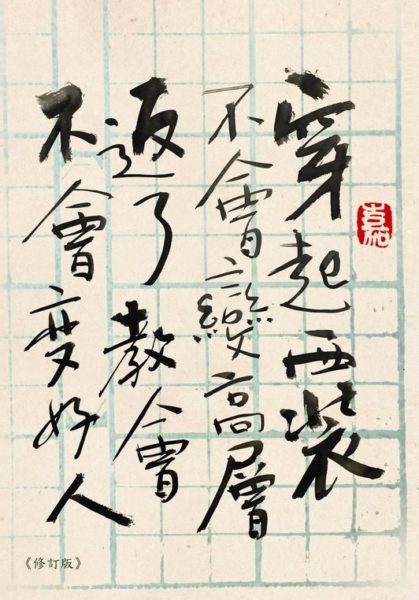 穿起西裝
不會變高層
返了教會
不會变好人
嘉
《修訂版》